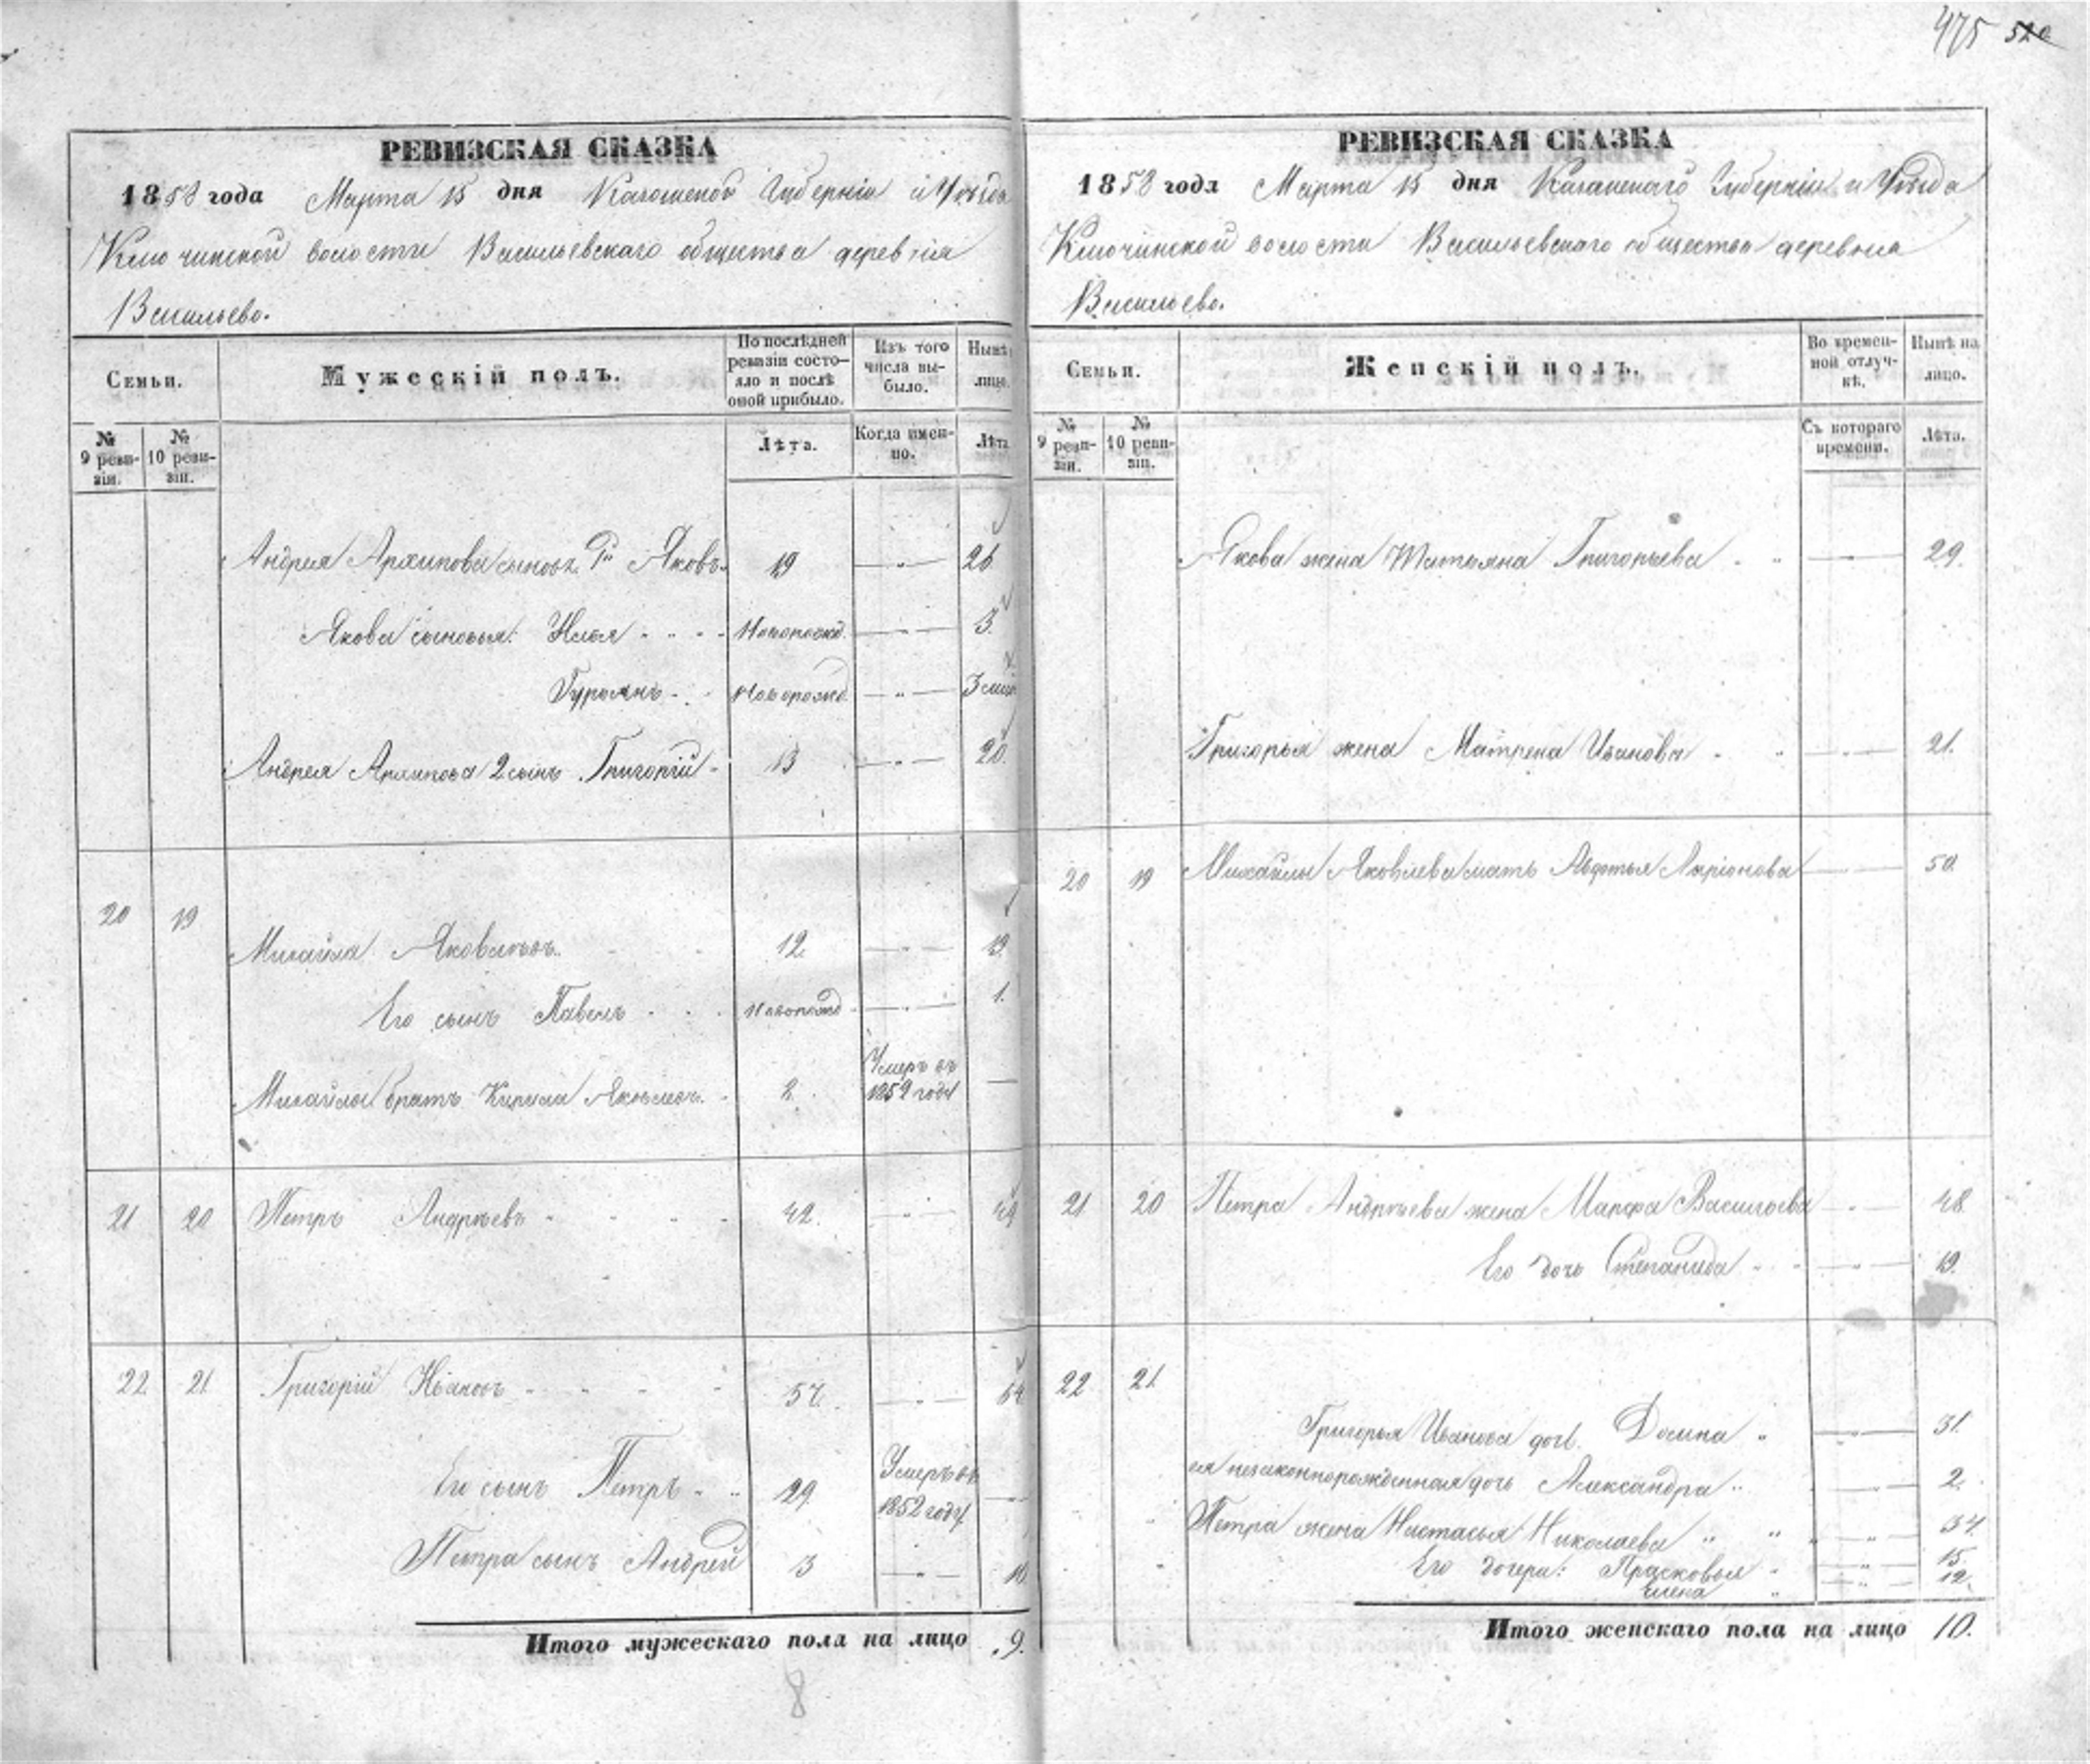 475 520
РЕВИЗСКАЯ СКАЗКА
1858 года Марта 15 дня Губерніи и Уѣзда
волости Васильевскаго общества деревня
Васильево.
Семьи.
Мужескій полъ.
По послѣдней ревизіи состояло и послѣ оной прибыло.
Изъ того числа выбыло.
Нынѣ лицо.
№ 9 ревизіи.
№ 10 ревизіи.
Лѣта.
Когда именно.
Лѣта
Андрея Архипова сыновья 1й Яковъ 19 — " — 26
Якова сыновья: Илья Новорожд. — " — 3.
Новорожд. — " — 3 мѣс
Андрея Архипова 2 сынъ Григорій 13 — " — 20.
20 19
Михайла Яковлевъ. 12. — " — 19.
Его сынъ Павелъ Новорожд — " — 1.
Михайлы братъ Кирила Яковлевъ. 2. Умеръ въ 1852 году —
21 20 Петръ Андреевъ 42. — " — 49
22 21 Григорій Ивановъ 57. — " — 64
Его сынъ Петръ 29. Умеръ въ 1852 году —
Петра сынъ Андрей 3 — " — 10.
Итого мужескаго пола на лицо 9.
8
РЕВИЗСКАЯ СКАЗКА
1858 года Марта 15 дня Губерніи и Уѣзда
волости Васильевскаго общества деревня
Васильево.
Семьи.
Женскій полъ.
Во временной отлучкѣ.
Нынѣ на лицо.
№ 9 ревизіи.
№ 10 ревизіи.
Съ котораго времени.
Лѣта.
Якова жена Татьяна Григорьева — " — 29.
Григорья жена Матрена Иванова — " — 21.
20 19 Михайлы Яковлева мать Авдотья Ларіонова — " — 50.
21 20 Петра Андреева жена Марфа Васильева — " — 48.
Его дочь Степанида — " — 19.
22 21
Григорья Иванова доч. Домна " — " — 31.
ея незаконнорожденная дочь Александра " 2.
Петра жена Настасья Николаева " " " — " — 34.
Его дочери: Прасковья — " — 15.
— " — 12.
Итого женскаго пола на лицо 10.